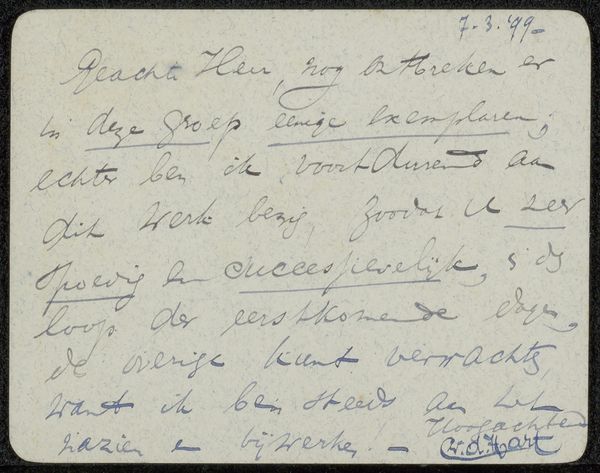 7.3.'99-
Geachte Heer, nog ontbreken er
in deze groep eenige exemplaren;
echter ben ik voortdurend aan
dit werk bezig, zoodat U zeer
spoedig en successievelijk, in de
loop der eerstkomende dagen,
de overige kunt verwachten,
want ik ben steeds aan het
nazien en bijwerken! -
Hoogachtend
W.d. Hart